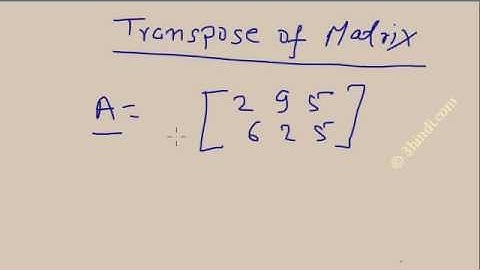 Transpose of Madrix
A = [ 2 9 5
6 2 5 ]
© 3hindi.com